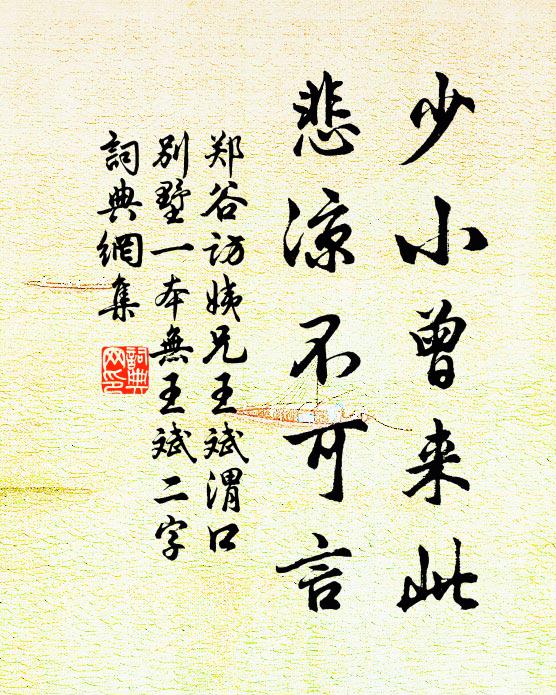 少小曾来此
悲凉不可言
郑谷访姨兄王斌渭口
别墅一本無王斌二字
詞典網集
詞典网印